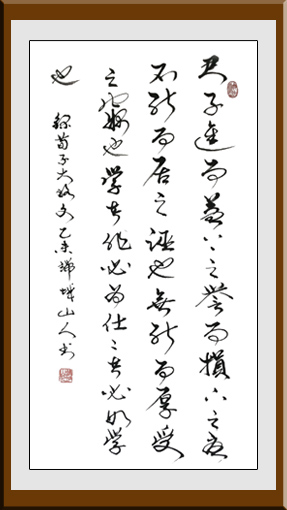 君子進而益上之譽而損下之憂
不能而居之誣也無能而厚受
之竊也學者非必為仕〻者必如學
也
錄荀子大略文乙未山人書